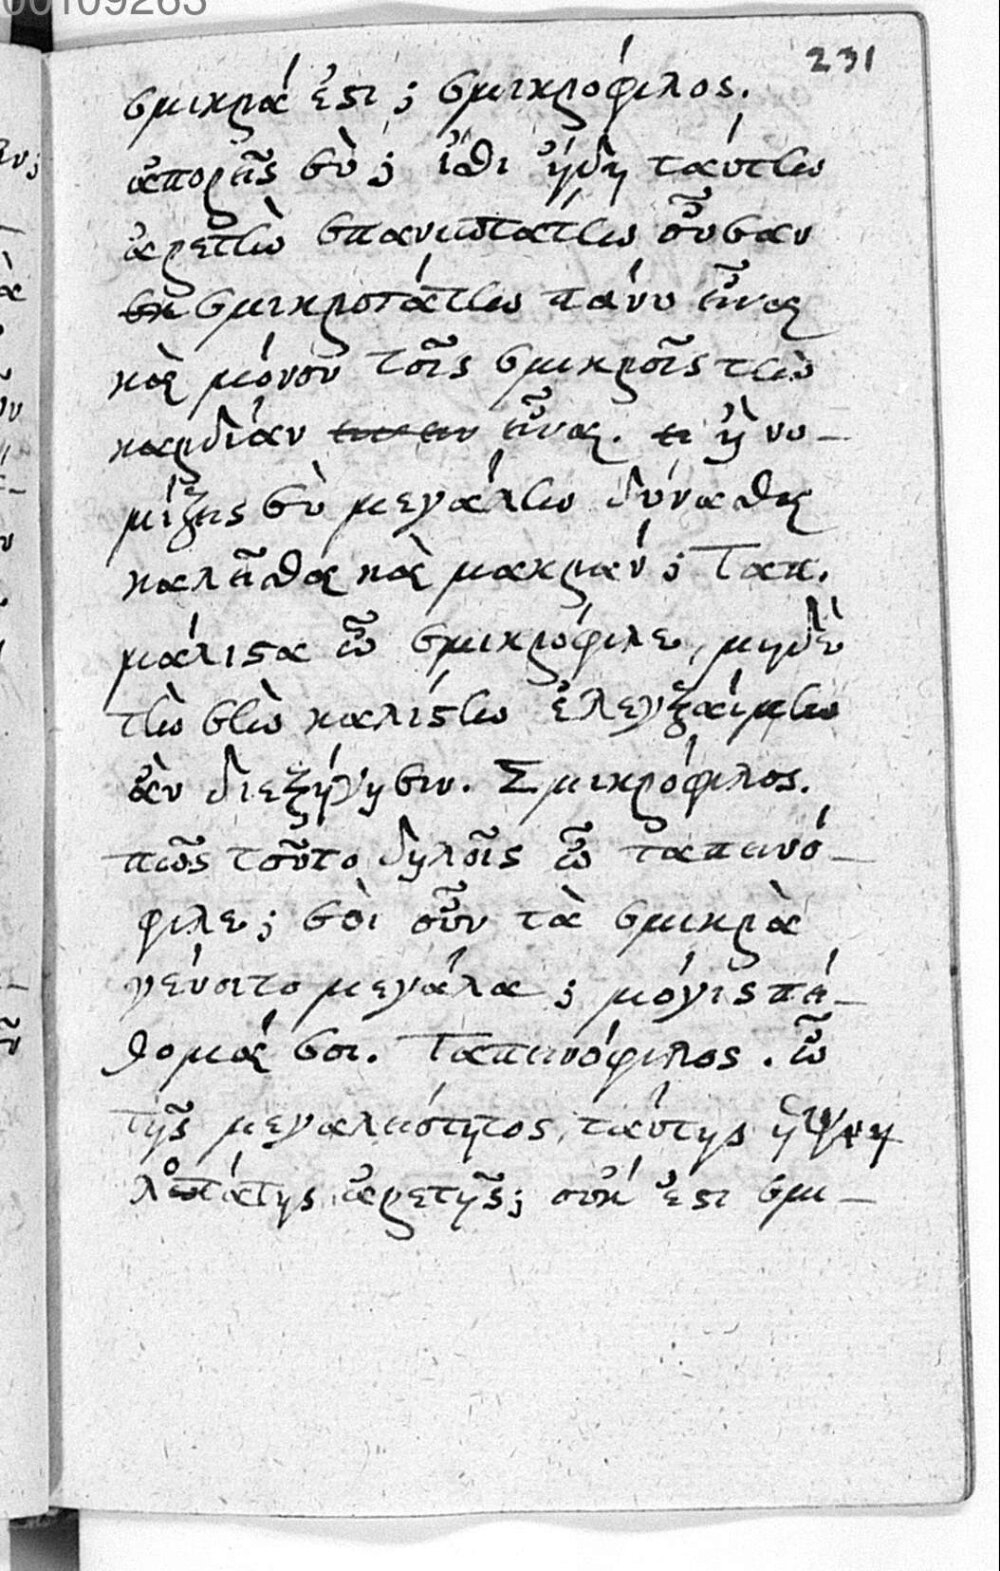 00109263
231
σμικρά ἐστι; σμικρόφιλος.
ἀπορεῖς σὺ; ἴσθι ἤδη ταύτην
ἀρετὴν σπανιωτάτην οὖσαν
σμικροτάτην πάνυ εἶναι
καὶ μόνον τοῖς σμικροῖς τὴν
καρδίαν εἶναι. ἢ νο-
μίζεις σὺ μεγάλην δύνασθαι
καλεῖσθαι καὶ μακράν; Ταπ.
μάλιστα ὦ σμικρόφιλε, μηδὲ
τὴν σὴν καλίστην ἐλεγξαίμην
ἂν διεξήγησιν. Σμικρόφιλος.
πῶς τοῦτο δηλοῖς ὦ ταπεινό-
φιλε; σὸι οὖν τὰ σμικρὰ
γένοιτο μεγάλα; μόγις πεί-
θομαί σοι. Ταπεινόφιλος. ὦ
τῆς μεγαλειότητος ταύτης
ἀρετῆς; οὐκ ἔστι σμι-